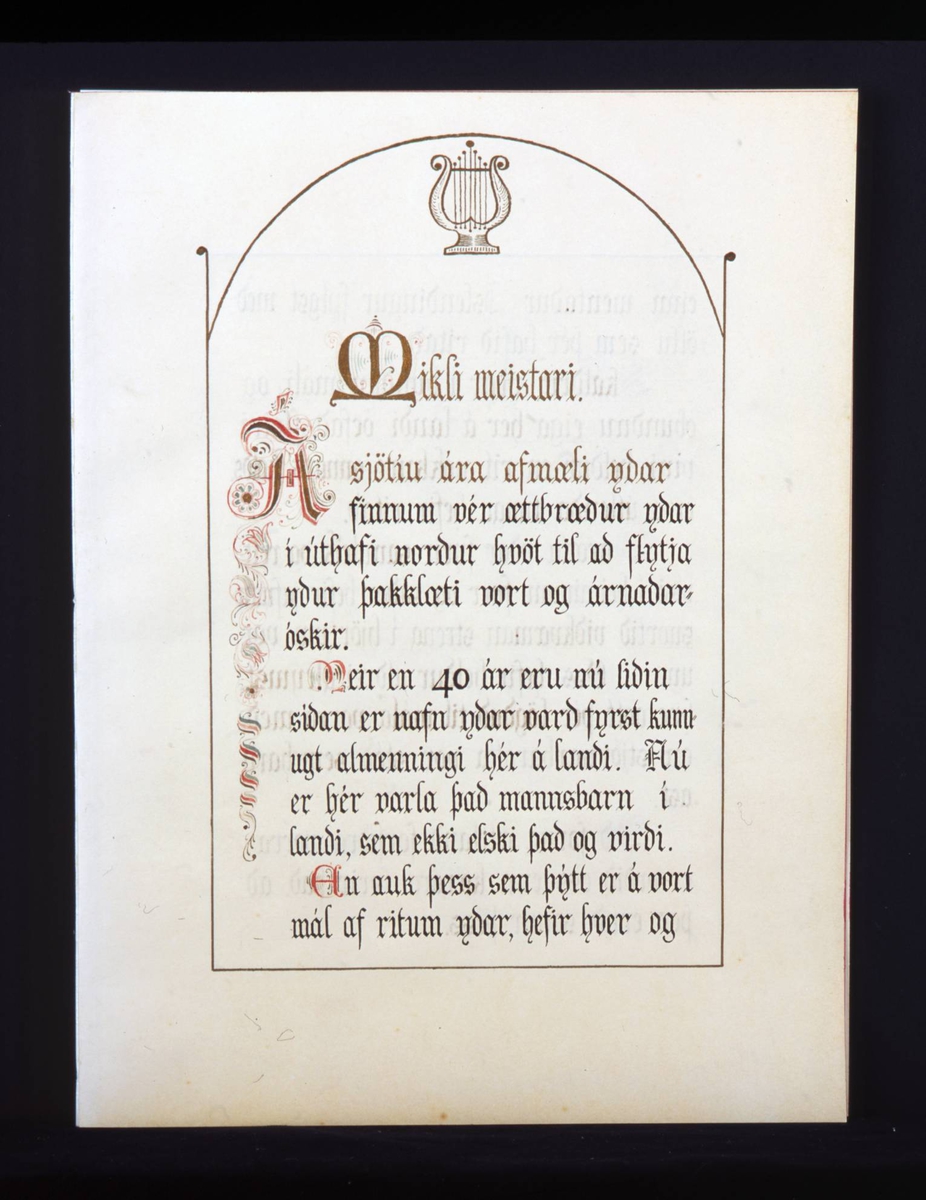 Mikli meistari.
Á sjötíu ára afmæli ydar
finnum vér ættbrædur ydar
í úthafi nordur hvöt til ad flytja
ydur þakklæti vort og árnadar-
óskir.
Meir en 40 ár eru nú lidin
sidan er nafn ydar vard fyrst kunn-
ugt almenningi hér á landi. Nú
er hér varla þad mannsbarn í
landi, sem ekki elski þad og virdi.
En auk þess sem þýtt er á vort
mál af ritum ydar, hefir hver og